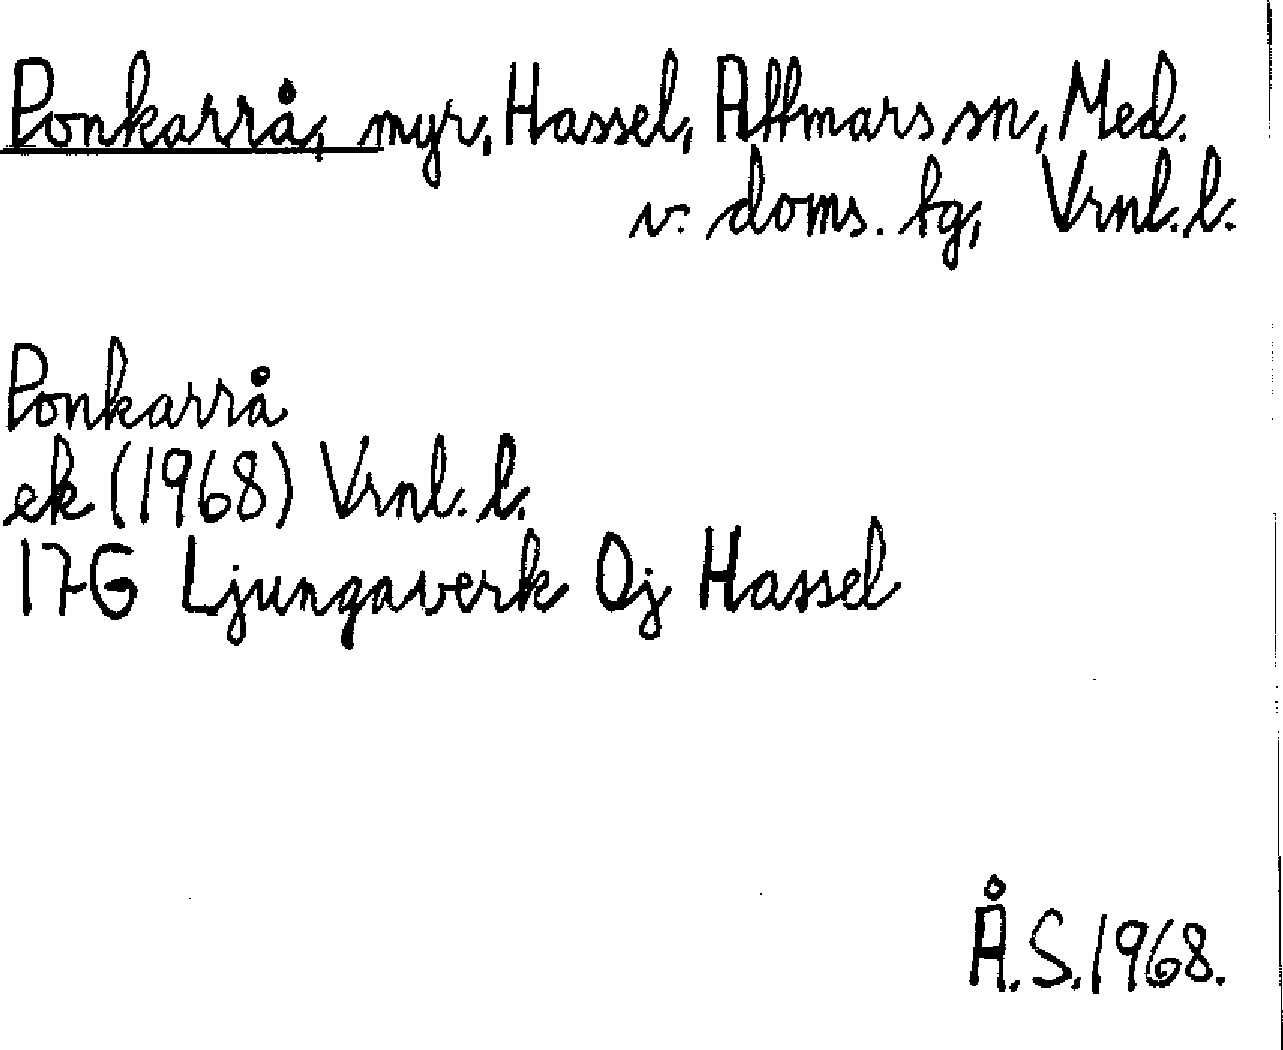 Ponkarrå, myr, Hassel, Attmars sn, Med.
v. doms. fg, Vrnl. l.
Ponkarrå
ek (1968) Vrnl. l.
17G Ljungaverk 0j Hassel
Å. S. 1968.